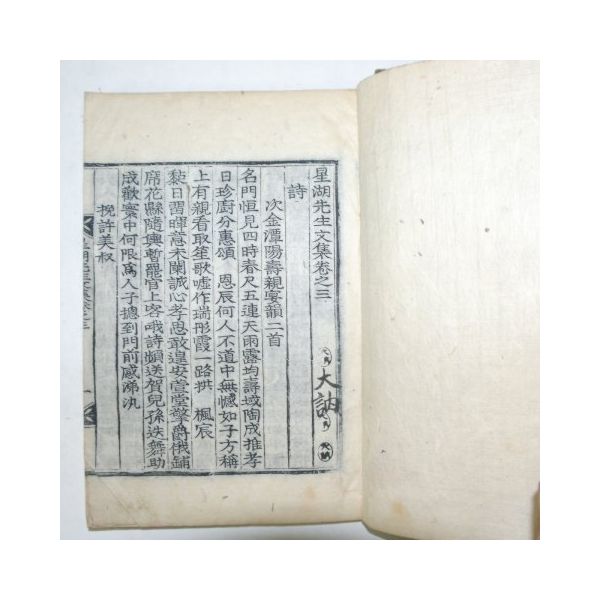 星湖先生文集卷之三
詩
次金潭陽壽親宴韻二首
名門恒見四時春尺五連天雨露均壽域陶成推孝
日珍廚分惠頌 恩辰何人不道中無憾如子方稱
上有親看取笙歌噓作瑞彤霞一路拱 楓宸
日習暉意未闌誠心孝思敢遑安萱堂擎爵俄鋪
席花縣隨興暫罷官上客哦詩頻送賀兒孫迭舞助
成歡寰中何限爲人子摠到門前感涕汍
挽許美叔
大訥